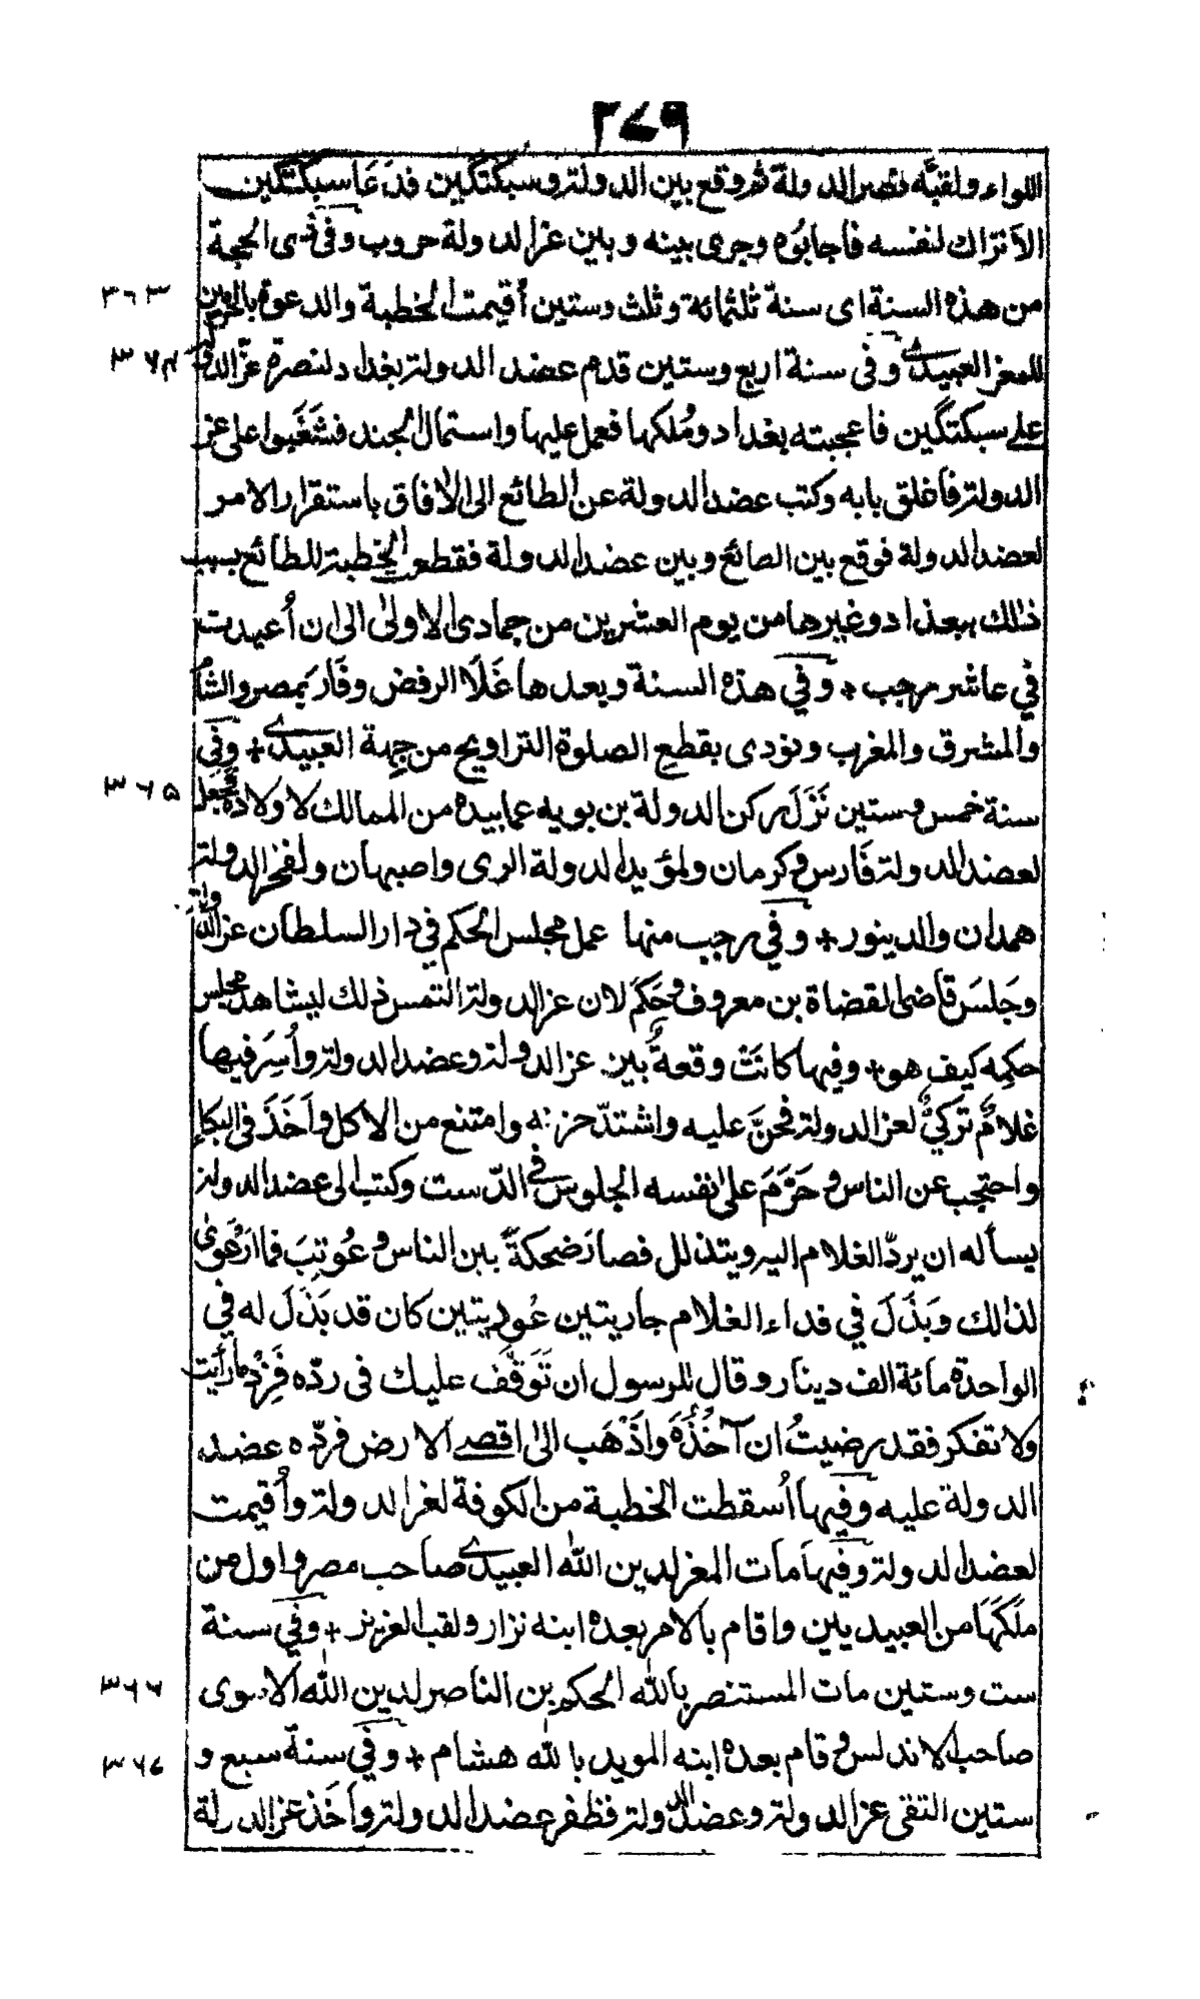 ٢٧٩
اللواء ولقبَّه نصر الدولة ثم وقع بين الدولة وسبكتگين فدَعَا سبكتگين
الاتراك لنفسه فاجابُوه وجرى بينه وبين عز الدولة حروب وفى ذى الحجة
٣٦٣ من هذه السنة اى سنة ثلثمائة وثلث وستين أُقيمت الخطبة والدعوة بالحرمين
٣٦٤ للمعز العبيدى وفى سنة اربع وستين قدم عضد الدولة بغداد لنصرة عزّ الدولة
على سبكتگين فاعجبته بغداد ومُلكها فعمل عليها واستمال الجند فشَغَبوا على عز
الدولة فاغلق بابه وكتب عضد الدولة عن الطائع الى الاٰفاق باستقرار الامر
لعضد الدولة فوقع بين الطائع وبين عضد الدولة فقطعت الخطبة للطائع بسبب
ذٰلك ببغداد وغيرها من يوم العشرين من جمادى الاولىٰ الى ان أُعيدت
في عاشر رجب + وفي هذه السنة وبعدها غَلَا الرفض وفَار بمصر والشام
والمشرق والمغرب ونودى بقطع الصلوة التراويح من جِهة العبيدى + وفى
٣٦٥ سنة خمس وستين نَزَلَ ركن الدولة بن بويه عما بيده من الممالك لاولاده فجعل
لعضد الدولة فَارس وكرمان ولمؤيد الدولة الرى واصبهان ولفخر الدولة
همدان والدينور + وفي رجب منها عمل مجلس الحكم في دار السلطان عز الدولة
وجَلسَ قاضى القضاة بن معروف وحَكَمَ لان عز الدولة التمس ذلك ليشاهد مجلس
حكمِه كيف هو + وفيها كانَتْ وقعةٌ بين عز الدولة وعضد الدولة وأُسَر فيها
غلامٌ تركيٌّ لعز الدولة فحنَّ عليه واشتدّ حزنه وامتنع من الاكل واَخَذَ فى البكاء
واحتجب عن الناس وحَرَّمَ علىٰ نفسه الجلوس في الدّست وكتب الى عضد الدولة
يسأله ان يردّ الغلام اليه ويتذلل فصار ضحكةً بين الناس وعُوتِبَ فما ارْعَوىٰ
لذالك وبَذَلَ في فداء الغلام جاريتين عُوديتين كان قد بَذَلَ له في
الواحدة مائة الف دينار وقال للرسول ان تَوَقَّفَ عليك فى ردّه فَزِدْ ما رأيت
ولا تفكر فقد رضيتُ ان آخُذَهُ واَذْهَب الىٰ اقصى الارض فردّه عضد
الدولة عليه وفيها اُسقطت الخطبة من الكوفة لعز الدولة وأُقيمت
لعضد الدولة وفيها مَات المعز لدين اللّٰه العبيدى صاحب مصر واول من
ملَكهَا من العبيديين واقام بالامر بعده ابنه نزار ولقب العزيز + وفي سنة
٣٦٦ ست وستين مات المستنصر باللّٰه الحكم بن الناصر لدين اللّٰه الاموى
صاحب الاندلس وقام بعده ابنه المويد باللّٰه هشام + وفي سنة سبع و
٣٦٧ ستين التقى عز الدولة وعضد الدولة فظفر عضد الدولة واَخذ عز الدولة